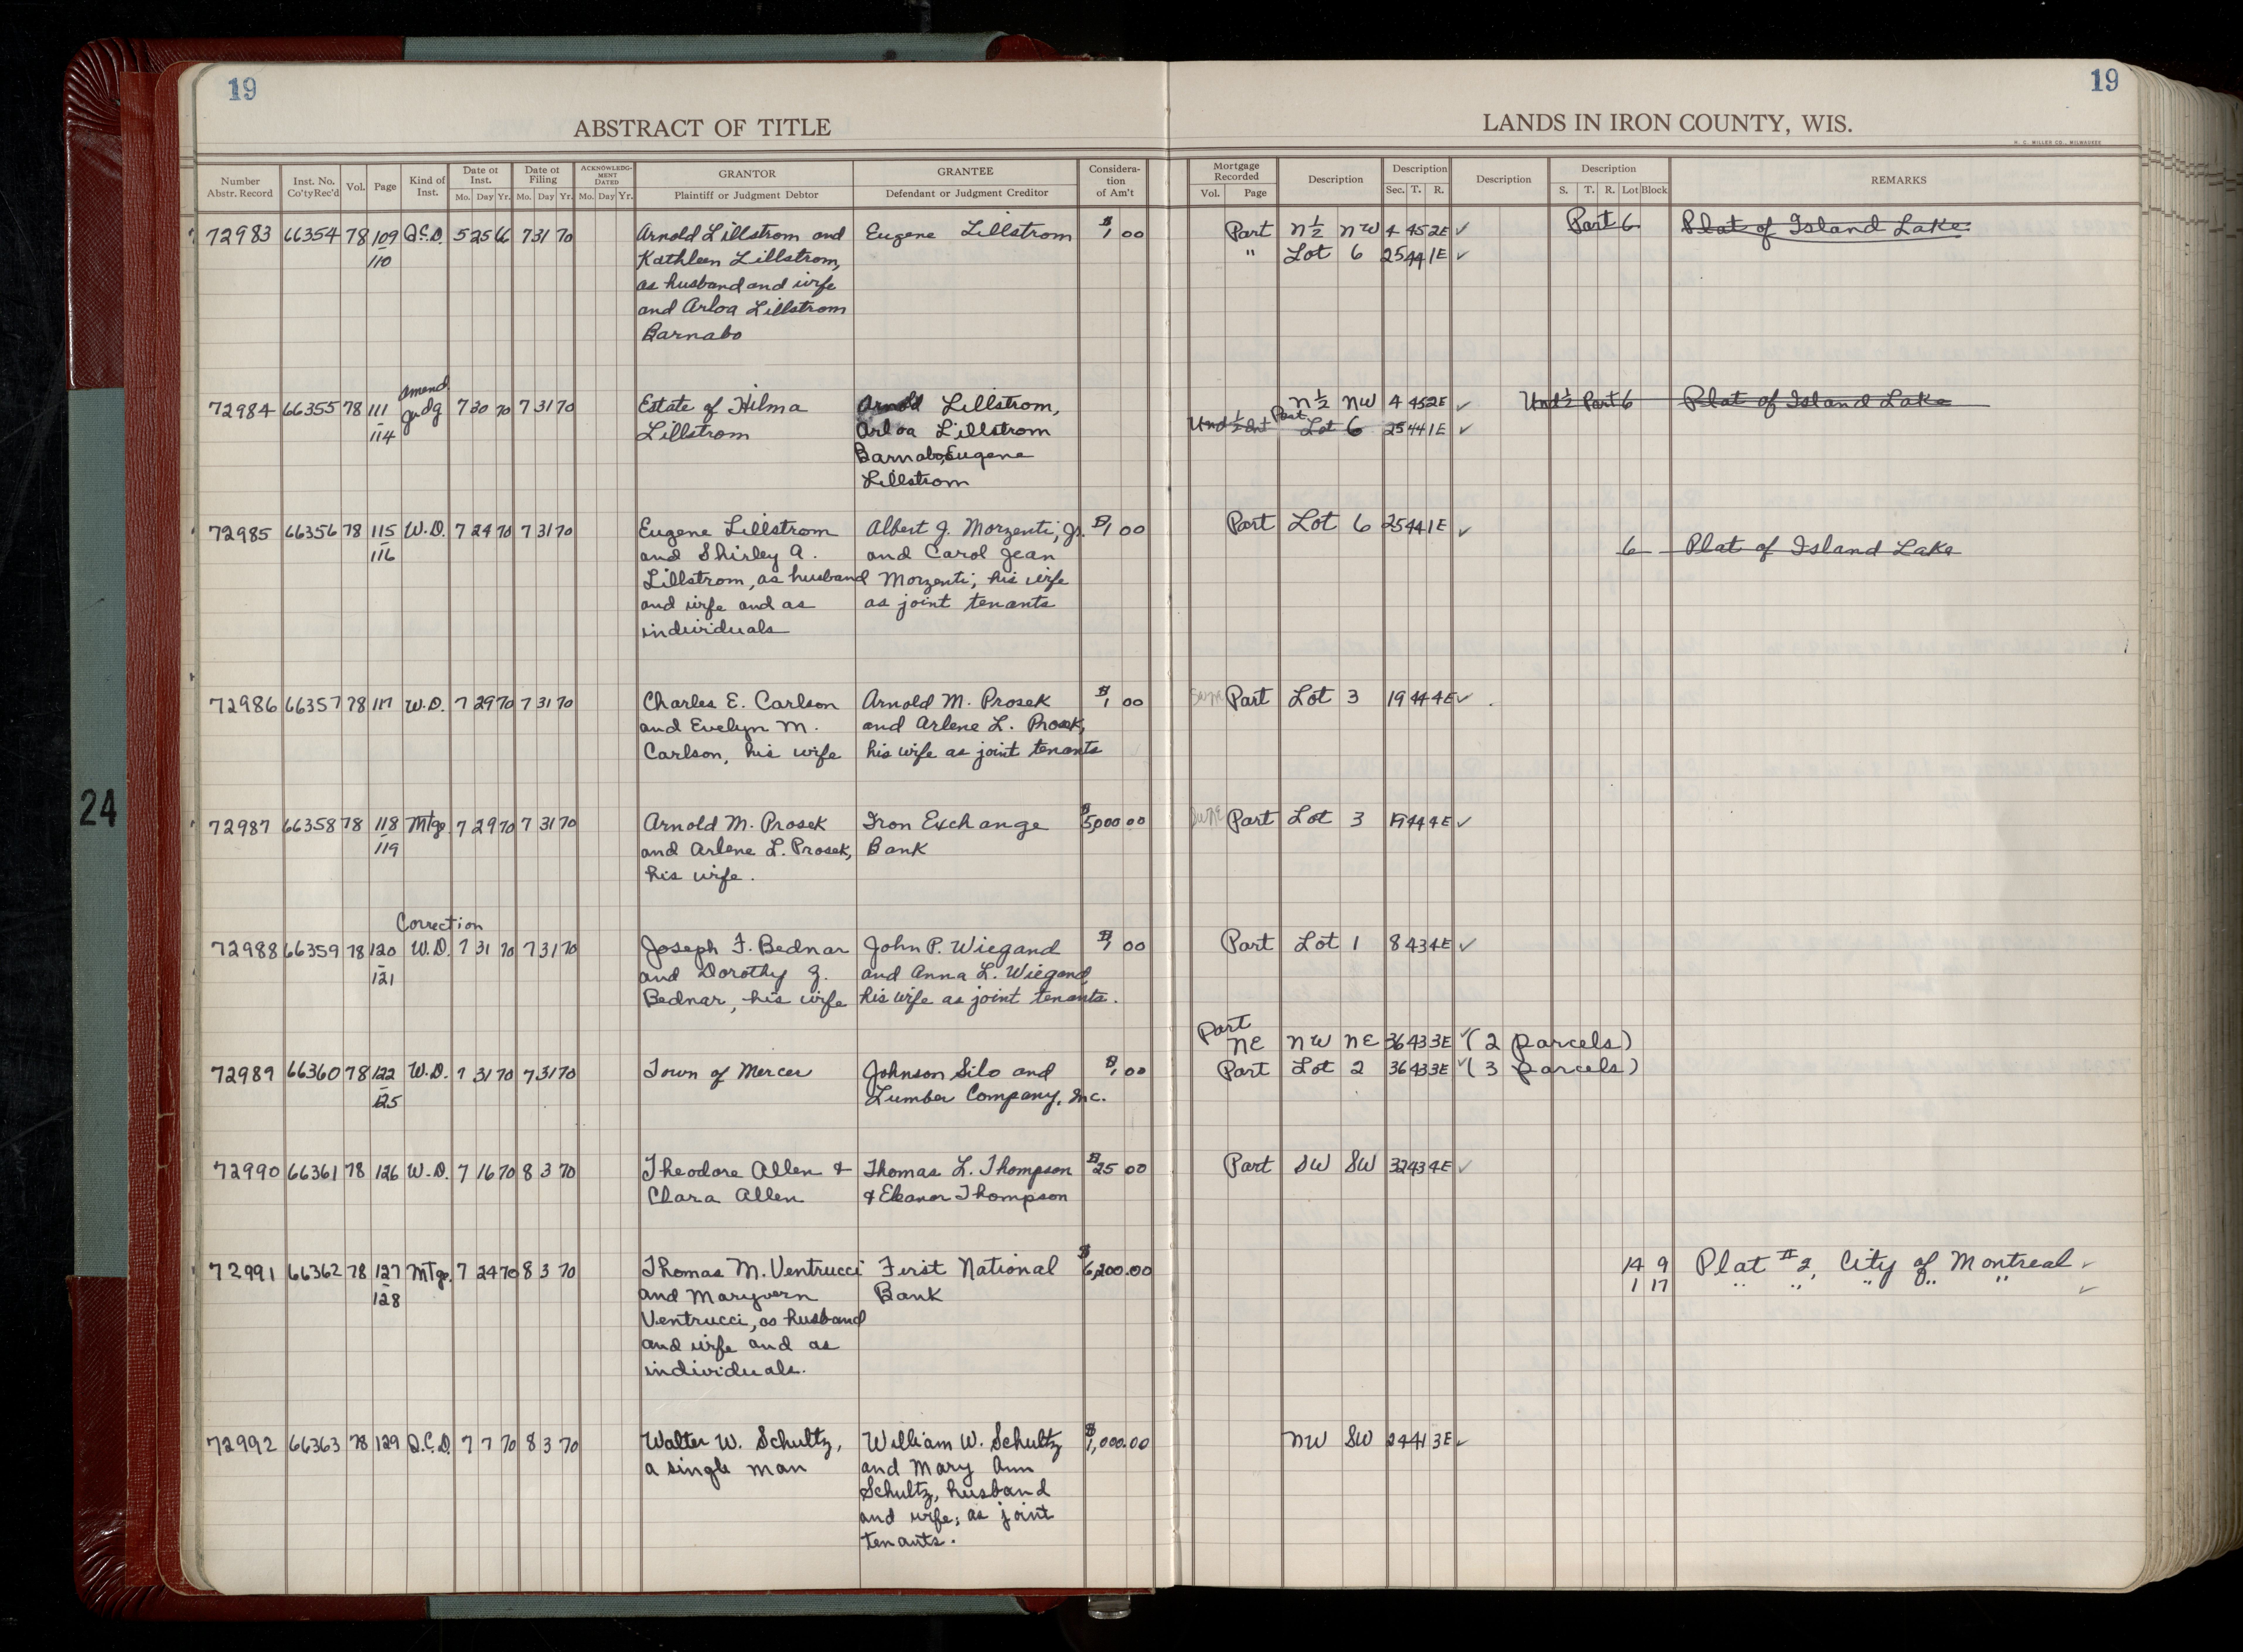 19
ABSTRACT OF TITLE
LANDS IN IRON COUNTY, WIS.
19
H. C. MILLER CO., MILWAUKEE
Number Abstr. Record | Inst. No. Co'ty Rec'd | Vol. | Page | Kind of Inst. | Date of Inst. Mo. Day Yr. | Date of Filing Mo. Day Yr. | ACKNOWLEDGMENT DATED Mo. Day Yr. | GRANTOR Plaintiff or Judgment Debtor | GRANTEE Defendant or Judgment Creditor | Consideration of Am't | Mortgage Recorded Vol. Page | Description | Description Sec. T. R. | Description | Description S. T. R. Lot Block | REMARKS
72983 66354 78 109 Q.C.D. 5 25 66 7 31 70 Arnold Lillstrom and Eugene Lillstrom $1 00 Part N½ NW 4 45 2E ✓ Part 6 Plat of Island Lake
110 Kathleen Lillstrom, " Lot 6 25 44 1E ✓
as husband and wife
and Arloa Lillstrom
Barnabo
Amend.
72984 66355 78 111 Judg 7 30 70 7 31 70 Estate of Hilma Arnold Lillstrom, N½ NW 4 45 2E ✓ Und ½ Part 6 Plat of Island Lake
114 Lillstrom Arloa Lillstrom Und ½ Int Part Lot 6 25 44 1E ✓
Barnabo, Eugene
Lillstrom
72985 66356 78 115 W.D. 7 24 70 7 31 70 Eugene Lillstrom Albert J. Morzenti, Jr. $1 00 Part Lot 6 25 44 1E ✓
116 and Shirley A. and Carol Jean 6 Plat of Island Lake
Lillstrom, as husband Morzenti, his wife
and wife and as as joint tenants
individuals
72986 66357 78 117 W.D. 7 29 70 7 31 70 Charles E. Carlson Arnold M. Prosek $1 00 Same Part Lot 3 19 44 4E ✓
and Evelyn M. and Arlene L. Prosek,
Carlson, his wife his wife as joint tenants
24
72987 66358 78 118 Mtge. 7 29 70 7 31 70 Arnold M. Prosek Iron Exchange $5,000 00 Same Part Lot 3 19 44 4E ✓
119 and Arlene L. Prosek, Bank
his wife.
Correction
72988 66359 78 120 W.D. 7 31 70 7 31 70 Joseph F. Bednar John P. Wiegand $1 00 Part Lot 1 8 43 4E ✓
121 and Dorothy J. and Anna L. Wiegand
Bednar, his wife his wife as joint tenants.
Part
NE NW NE 36 43 3E ✓ (2 parcels)
72989 66360 78 122 W.D. 7 31 70 7 31 70 Town of Mercer Johnson Silo and $1 00 Part Lot 2 36 43 3E ✓ (3 parcels)
125 Lumber Company, Inc.
72990 66361 78 126 W.D. 7 16 70 8 3 70 Theodore Allen & Thomas L. Thompson $25 00 Part SW SW 32 43 4E ✓
Clara Allen & Eleanor Thompson
72991 66362 78 127 Mtge. 7 24 70 8 3 70 Thomas M. Ventrucci First National $6,200.00 14 9 Plat #2, City of Montreal ✓
128 and Maryvern Bank 1 17 " " " " " ✓
Ventrucci, as husband
and wife and as
individuals.
72992 66363 78 129 Q.C.D. 7 7 70 8 3 70 Walter W. Schultz, William W. Schultz $1,000.00 NW SW 24 41 3E ✓
a single man and Mary Ann
Schultz, husband
and wife, as joint
tenants.